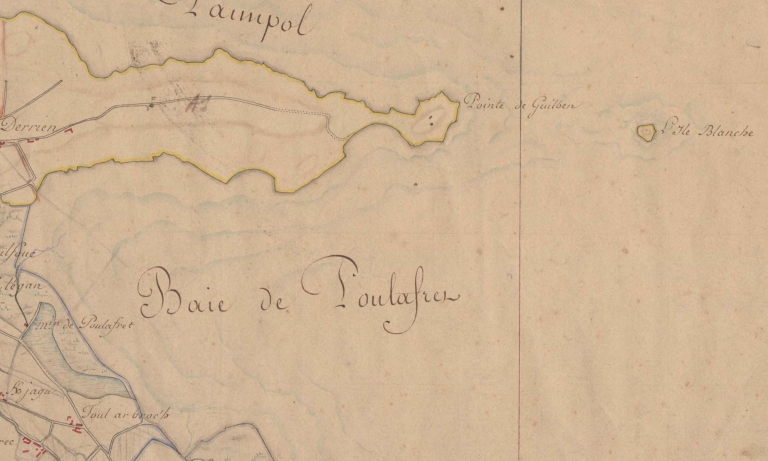 Paimpol
Pointe de Guilben
L'Ile Blanche
Derrien
Baie de Poulafret
min de Poulafret
Kjagu
Toul ar broch